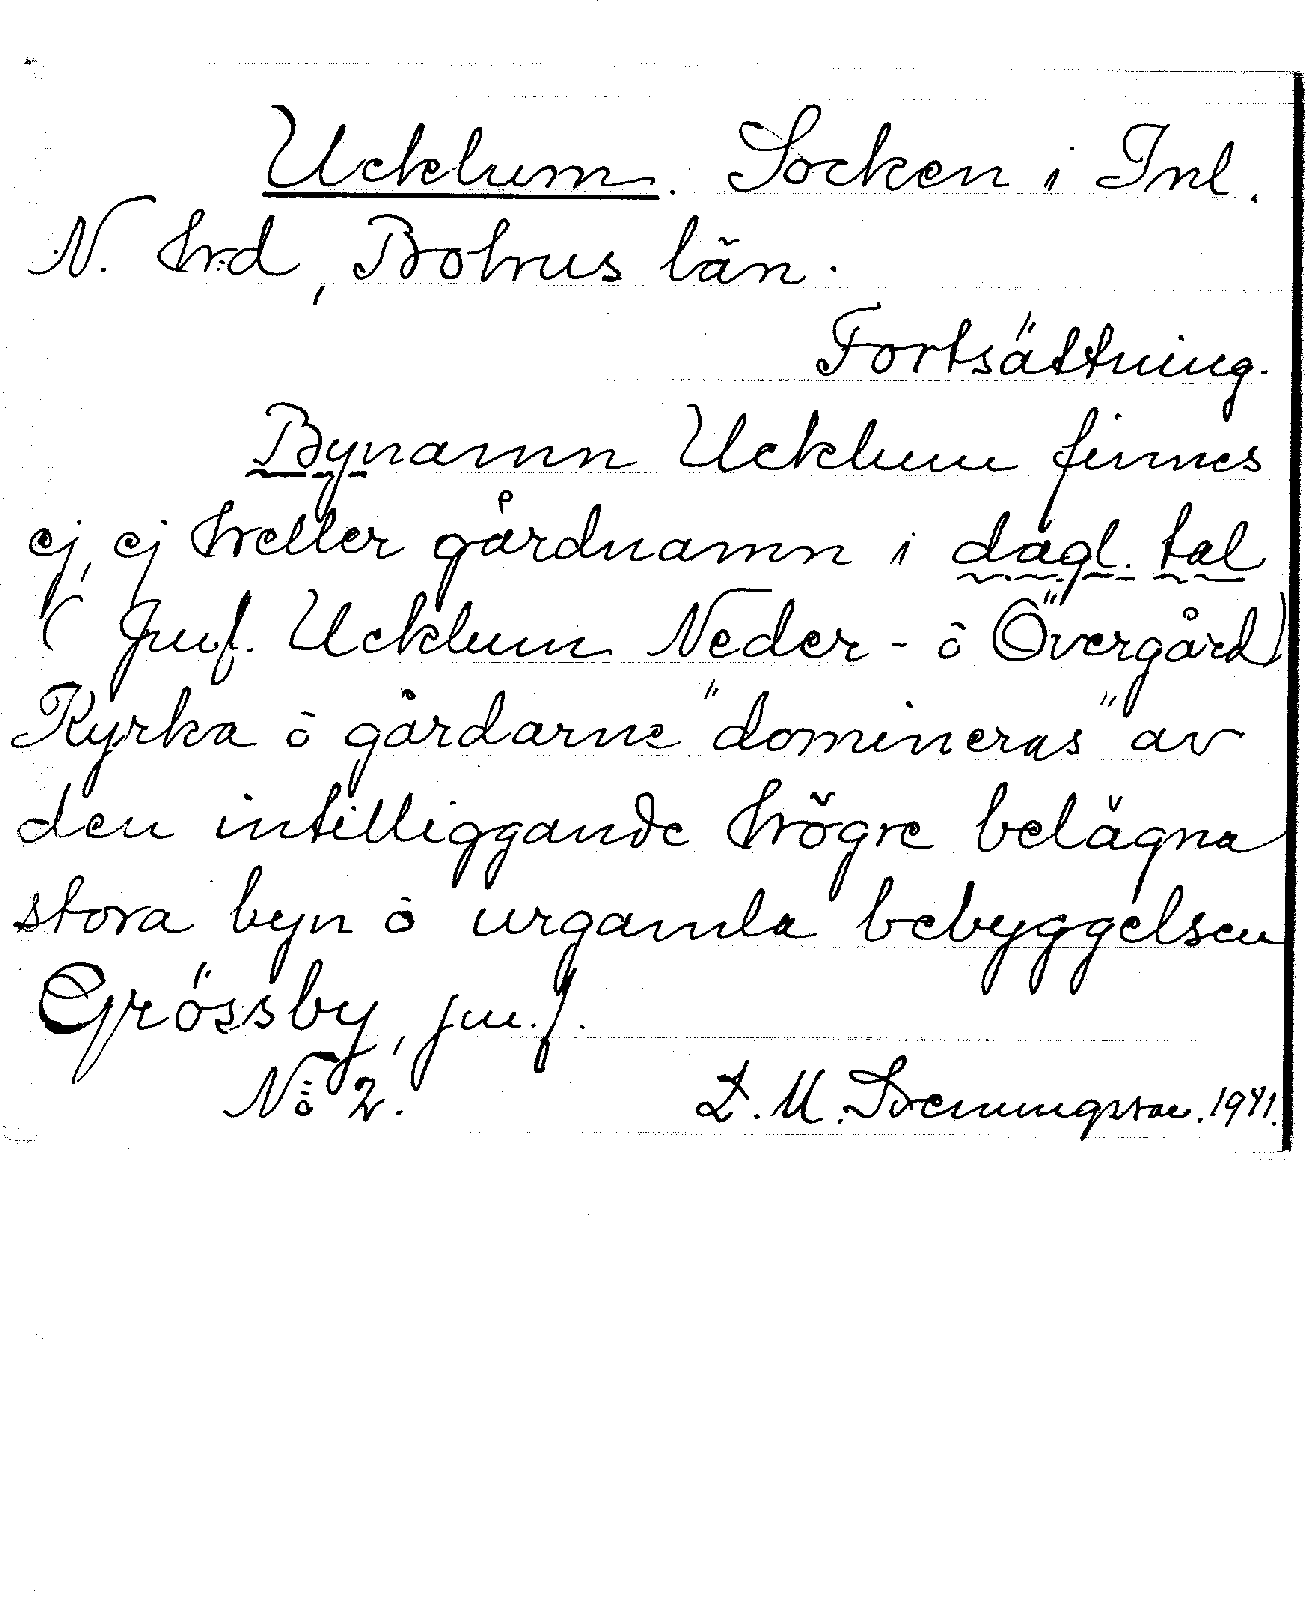 Ucklum. Socken i Inl.
N. Hrd, Bohus län.
Fortsättning.
Bynamn Ucklum finnes
ej, ej heller gårdnamn i dagl. tal
(jmf. Ucklum Neder- o Övergård)
Kyrka o gårdarne "domineras" av
den intilliggande högre belägna
stora byn o urgamla bebyggelsen
Grössby, jmf.
No 2. L. M. 1941.